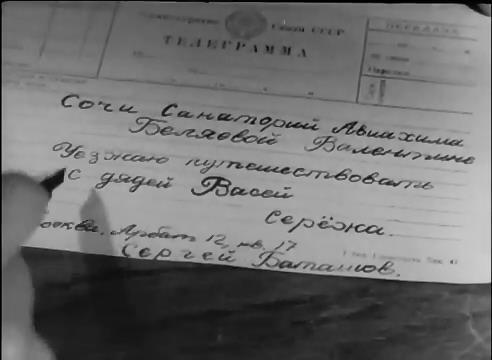 Связи СССР
ТЕЛЕГРАММА
ПЕРЕДАЧА
Сочи Санаторий Авиахима
Беляевой Валентине
Уезжаю путешествовать
с дядей Васей
Серёжа.
Арбат 12, кв. 17
Сергей Баташов.